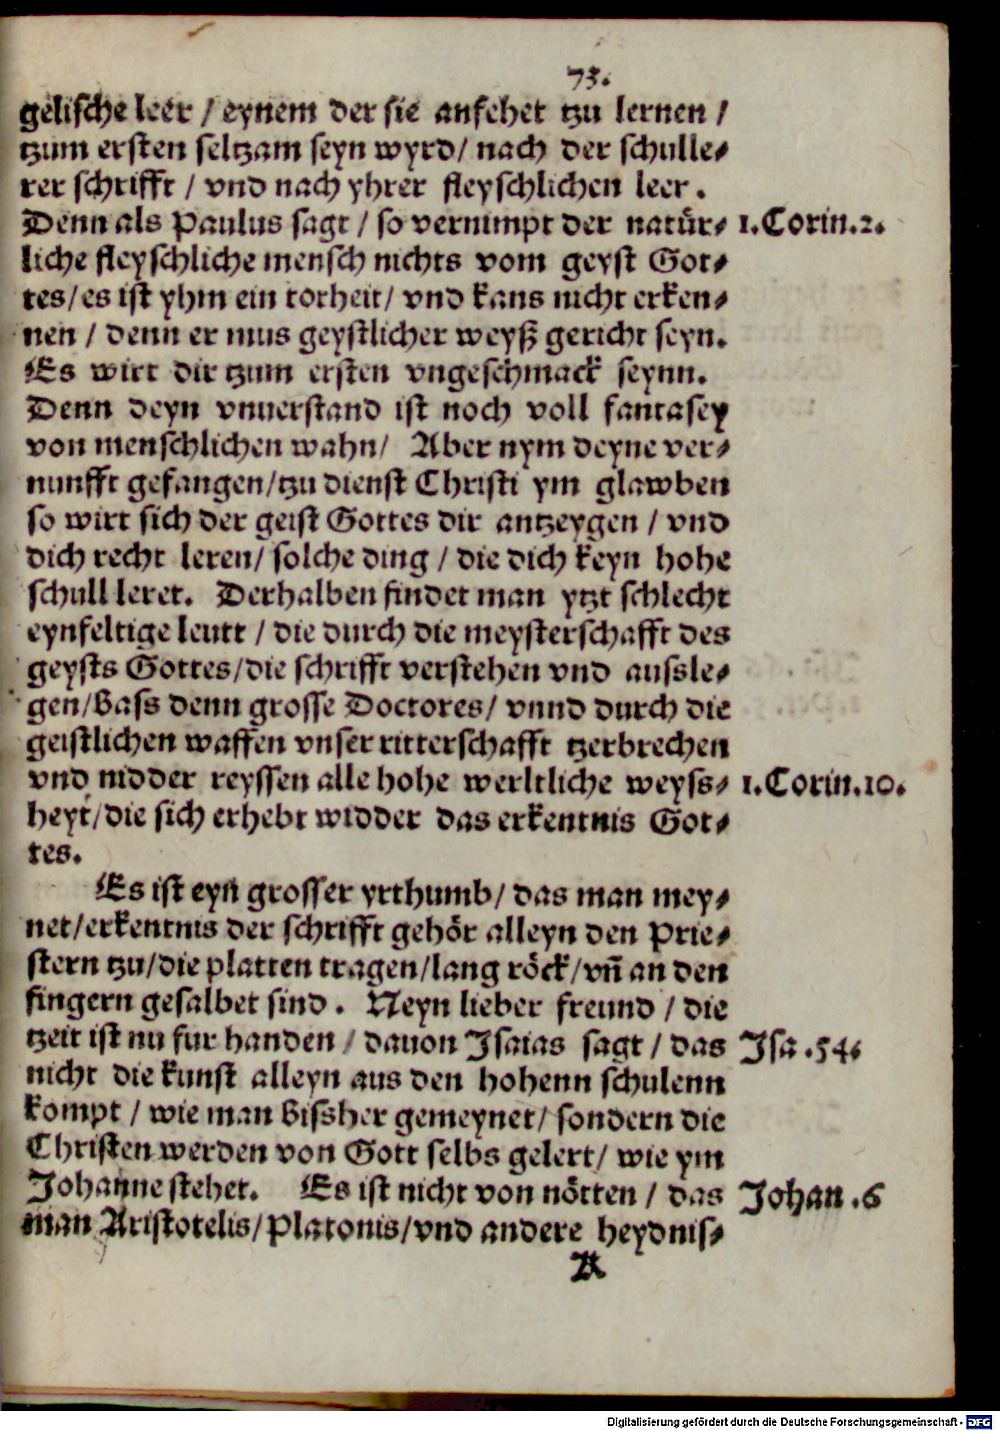 73.
gelische leer / eynem der sie ansehet tzu lernen /
tzum ersten seltzam seyn wyrd / nach der schulle⸗
rer schrifft / vnd nach yhrer fleyschlichen leer .
Denn als Paulus sagt / so vernimpt der natůr⸗ 1.Corin.2.
liche fleyschliche mensch nichts vom geyst Got⸗
tes / es ist yhm ein torheit / vnd kans nicht erken⸗
nen / denn er mus geystlicher weyß gericht seyn.
Es wirt dir tzum ersten vngeschmack seynn.
Denn deyn vnuerstand ist noch voll fantasey
von menschlichen wahn / Aber nym deyne ver⸗
nunfft gefangen / tzu dienst Christi ym glawben
so wirt sich der geist Gottes dir antzeygen / vnd
dich recht leren / solche ding / die dich keyn hohe
schull leret. Derhalben findet man ytzt schlecht
eynfeltige leutt / die durch die meysterschafft des
geysts Gottes / die schrifft verstehen vnd aussle⸗
gen / bass denn grosse Doctores / vnnd durch die
geistlichen waffen vnser ritterschafft tzerbrechen
vnd nidder reyssen alle hohe werltliche weyss⸗ 1.Corin.10.
heyt / die sich erhebt widder das erkentnis Got⸗
tes.
Es ist eyn grosser yrthumb / das man mey⸗
net / erkentnis der schrifft gehör alleyn den Prie⸗
stern tzu / die platten tragen / lang röck / vñ an den
fingern gesalbet sind . Neyn lieber freund / die
tzeit ist nu fur handen / dauon Isaias sagt / das Isa .54.
nicht die kunst alleyn aus den hohenn schulenn
kompt / wie man bissher gemeynet / sondern die
Christen werden von Gott selbs gelert / wie ym
Johanne stehet. Es ist nicht von nötten / das Johan .6
man Aristotelis / Platonis / vnd andere heydnis⸗
A
Digitalisierung gefördert durch die Deutsche Forschungsgemeinschaft - DFG